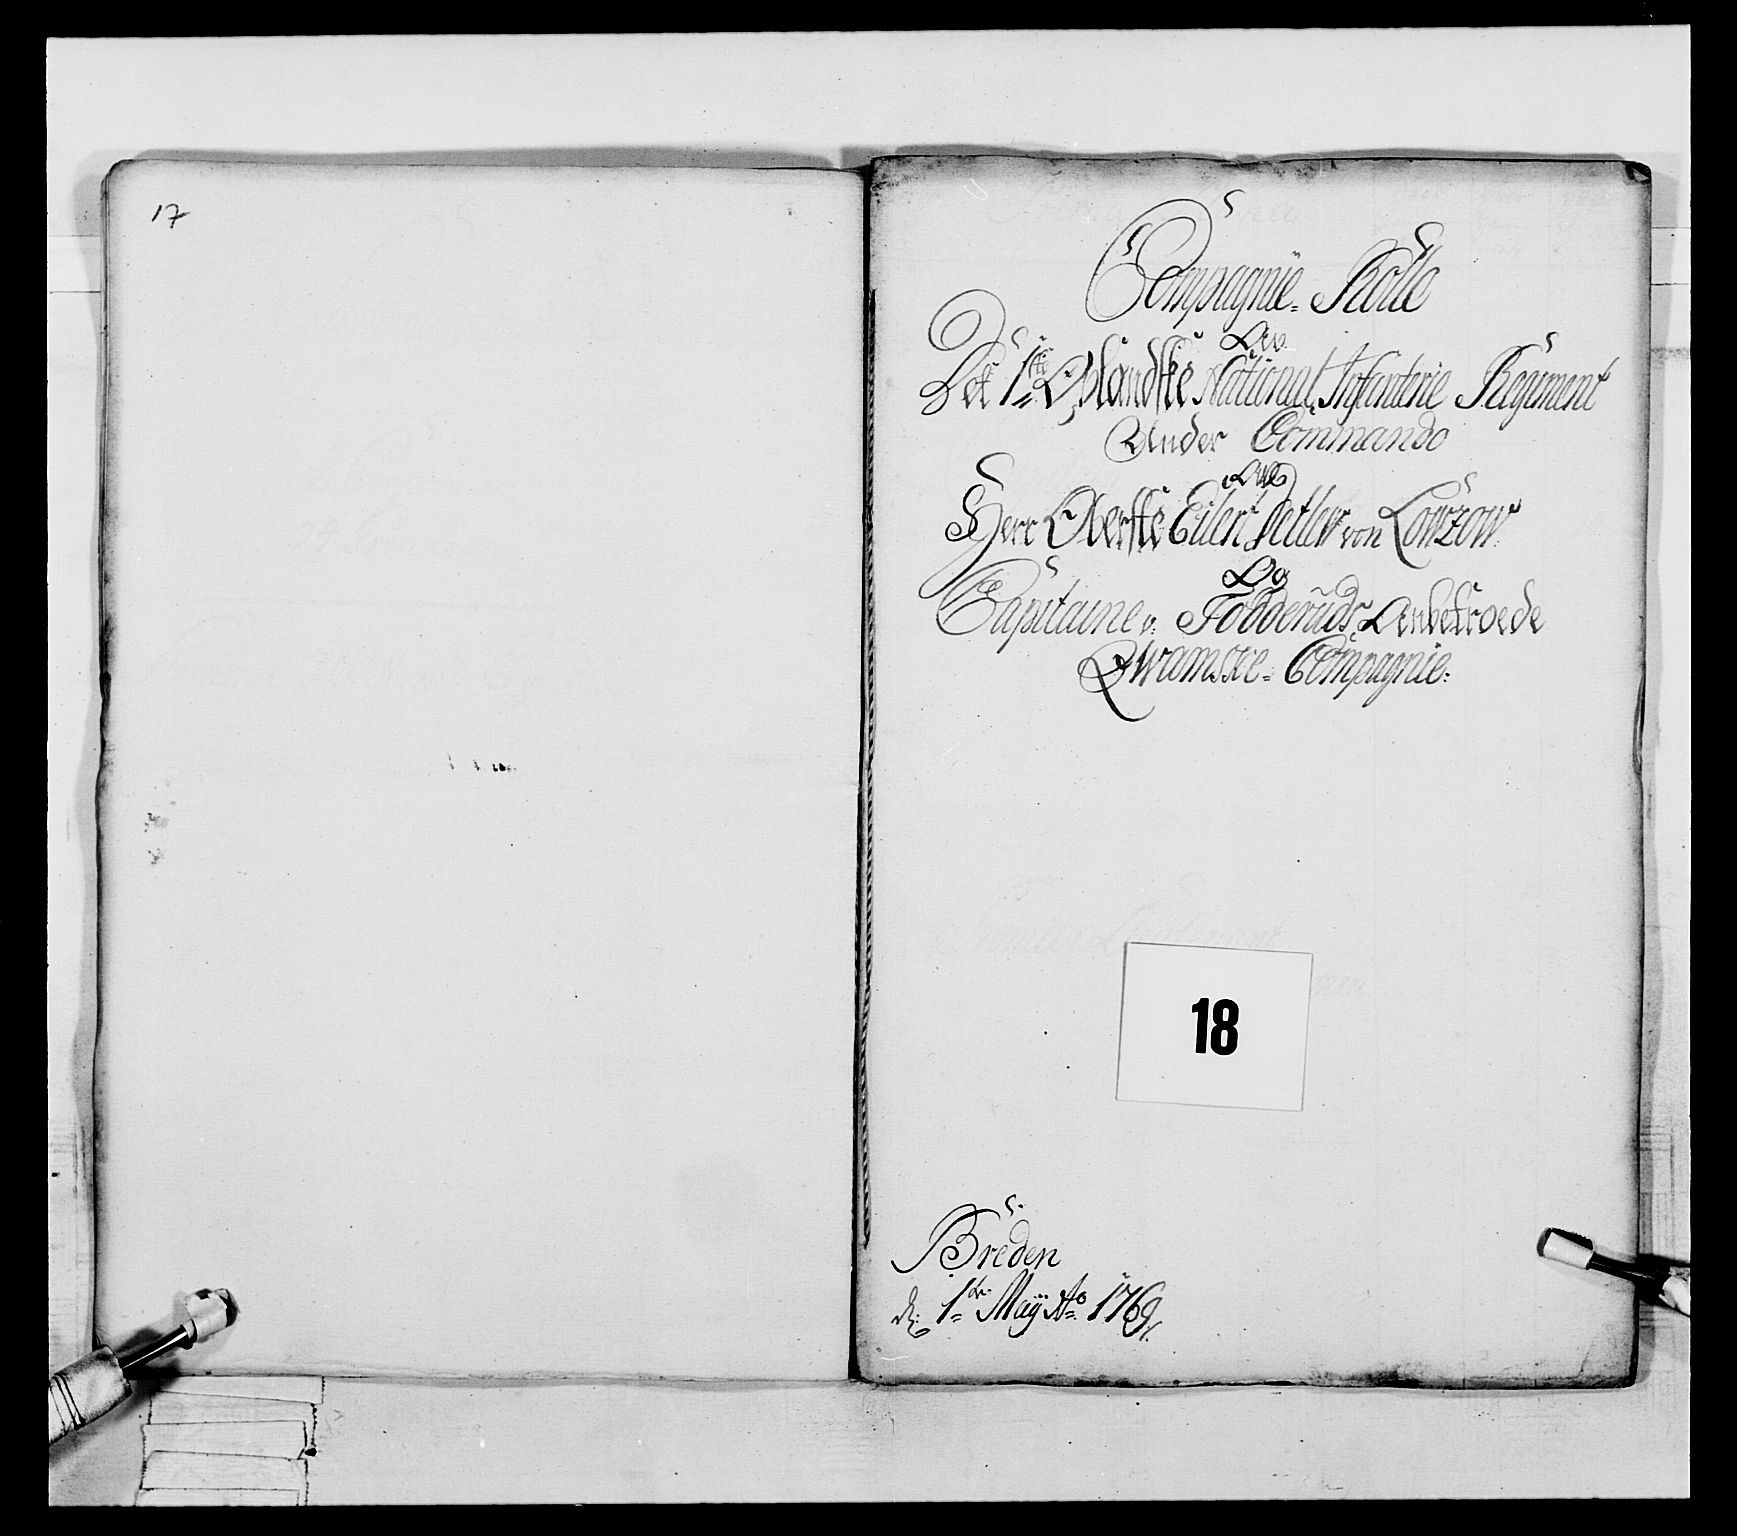 17
Compagnie-Rolle
Av
Det 1ste Oplandske National Infanterie Regiment
Under Commando
Av
Herr Oberste Eilert Detlev von Lowzow
Og
Capitaine v: Tobderuds Anbetroede
Qwamske-Compagnie:
18
Breden
d: 1te Maÿ Ao 1769